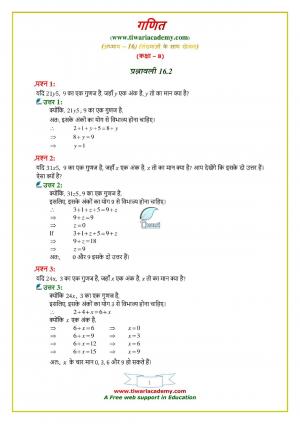 गणित
(www.tiwariacademy.com)
(अध्याय – 16) (संख्याओं के साथ खेलना)
(कक्षा – 8)
प्रश्नावली 16.2
प्रश्न 1:
यदि 21y5, 9 का एक गुणज है, जहाँ y एक अंक है, y तो का मान क्या है?
उत्तर 1:
क्योंकि, 21y5, 9 का एक गुणज है.
अतः, इसके अंकों का योग 9 से विभाज्य होना चाहिए।
⇒ 2+1+y+5=8+y
⇒ 8+y=9
⇒ y=1
प्रश्न 2:
यदि 31z5, 9 का एक गुणज है, जहाँ z एक अंक है, z तो का मान क्या है? आप देखेंगे कि इसके दो उत्तर हैं।
ऐसा क्यों है?
उत्तर 2:
क्योंकि, 31z5, 9 का एक गुणज है.
इसलिए, इसके अंकों का योग 9 से विभाज्य होना चाहिए।
⇒ 3+1+z+5=9+z
⇒ 9+z=9
⇒ z=0
If 3+1+z+5=9+z
⇒ 9+z=18
⇒ z=9
अतः, 0 और 9 इसके दो उत्तर हैं।
प्रश्न 3:
यदि 24x, 3 का एक गुणज है, जहाँ x एक अंक है, x तो का मान क्या है?
उत्तर 3:
क्योंकि 24x, 3 का एक गुणज है.
इसलिए, इसके अंकों का योग 3 से विभाज्य होना चाहिए।
⇒ 2+4+x=6+x
क्योंकि x एक अंक है.
⇒ 6+x=6 ⇒ x=0
⇒ 6+x=9 ⇒ x=3
⇒ 6+x=12 ⇒ x=6
⇒ 6+x=15 ⇒ x=9
अतः, x के चार मान 0, 3, 6 और 9 हो सकते हैं।
1
www.tiwariacademy.com
A Free web support in Education